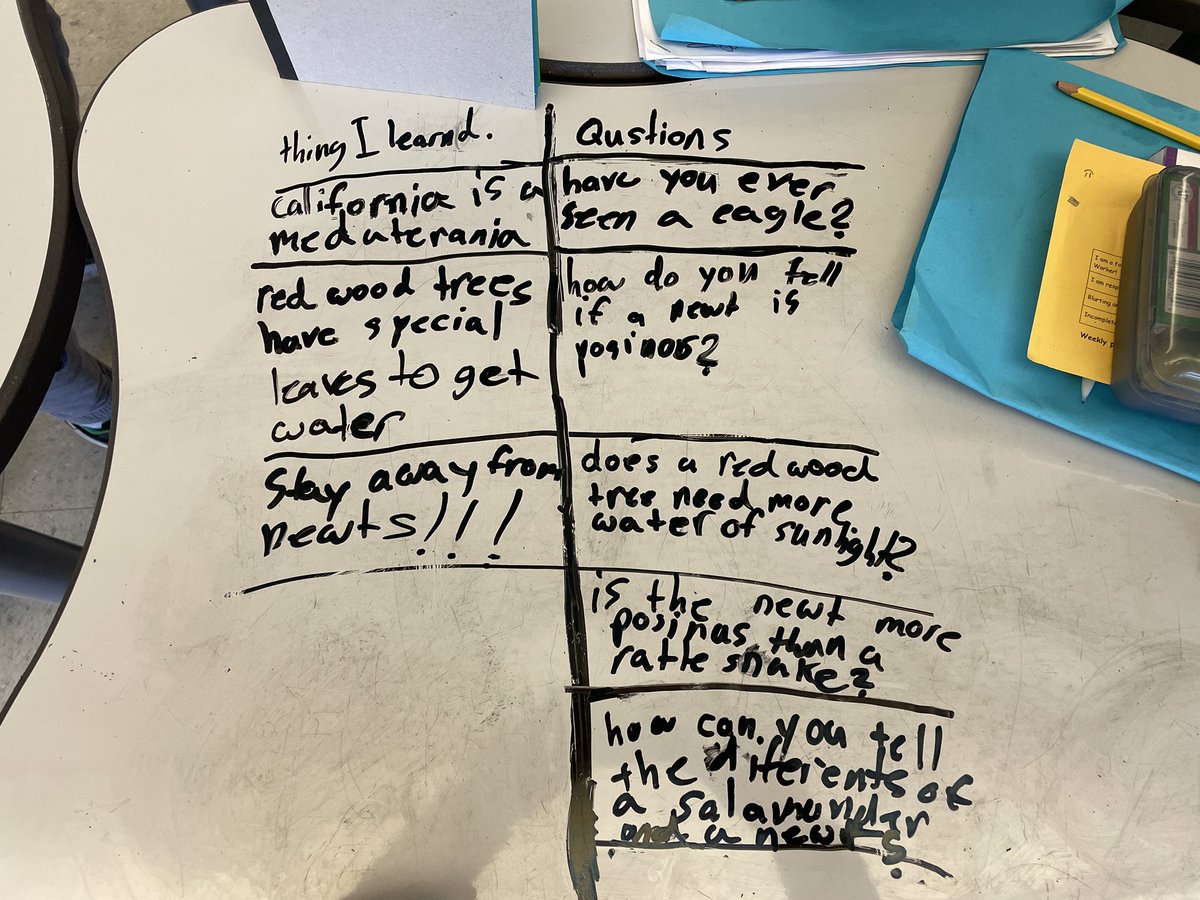 thing I learnd.
california is a
meduterania
red wood trees
have special
leaves to get
water
Stay away from
newts!!!
Qustions
have you ever
seen a eagle?
how do you tell
if a newt is
yosinors?
does a redwood
tree need more
water of sunlight?
is the newt more
posinas than a
rattle snake?
how can you tell
the diferents of
a salamunder
and a newts
I am a fo
Worker!
I am resp
Blurting ou
Incomplete
Weekly p